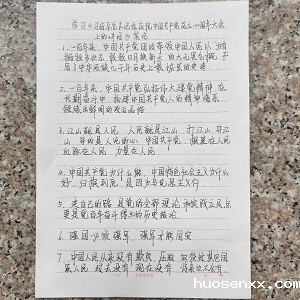 学习《习近平总书记在庆祝中国共产党成立100周年大会
上的讲话》笔记
1、一百年来，中国共产党团结带领中国人民，以
写了中华民族几千年历史上最恢宏的史诗
2、一百年来，中国共产党弘扬伟大建党精神，在
长期奋斗中构建起中国共产党人的精神谱系，
锤炼出鲜明的政治品格
3、江山就是人民，人民就是江山，打江山、守江
山，守的是人民的心。中国共产党根基在人民、
血脉在人民、力量在人民
4、中国共产党为什么能，中国特色社会主义为什么
好，归根到底是因为马克思主义行
5、走自己的路，是党的全部理论和实践立足点，
更是党百年奋斗得出的历史结论
6、强国必须强军，强军才能国安
7、中国人民从来没有欺负、压迫、奴役过其他国
家人民，过去没有，现在没有，将来也不会有
huosenxx.com